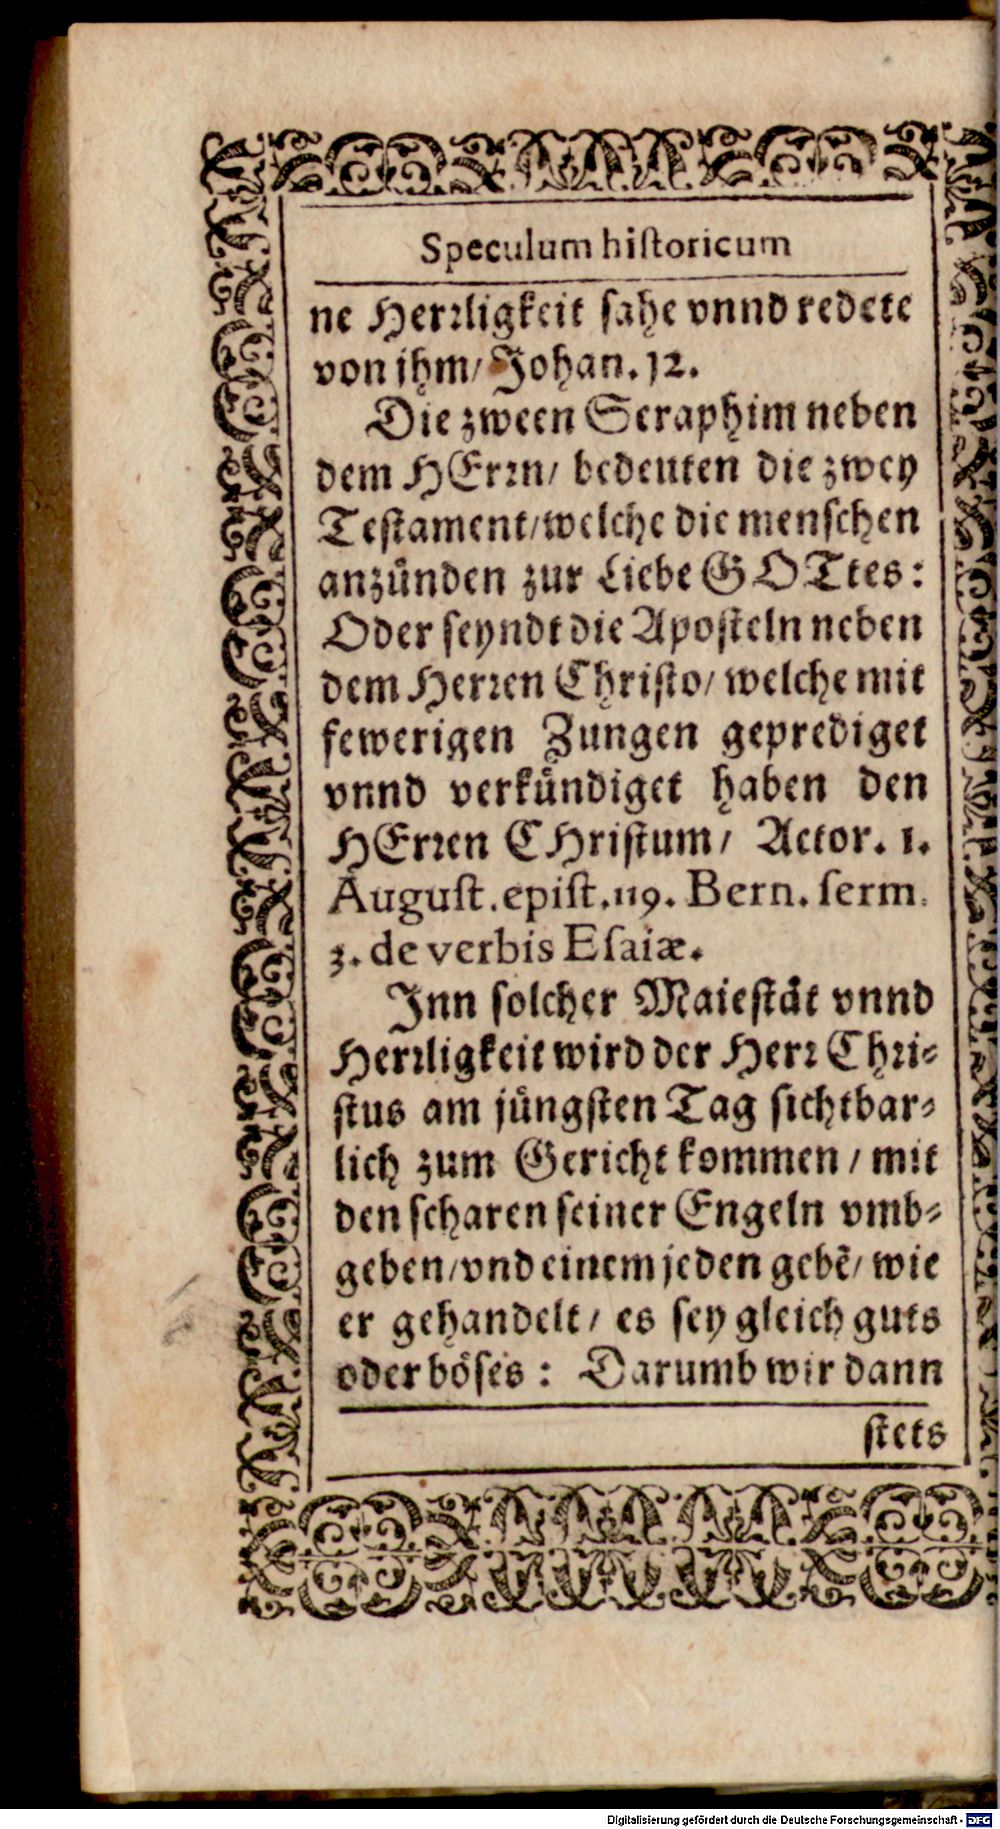 Speculum hiſtoricum
ne Herꝛligkeit ſahe vnnd redete
von jhm/ Johan. 12.
Die zween Seraphim neben
dem HErꝛn/ bedeuten die zwey
Teſtament/welche die menſchen
anzünden zur Liebe GOTtes:
Oder ſeyndt die Apoſteln neben
dem Herꝛen Chriſto/ welche mit
fewerigen Zungen geprediget
vnnd verkündiget haben den
HErꝛen CHriſtum/ Actor. 1.
Auguſt. epiſt. 119. Bern. ſerm.
3. de verbis Eſaiæ.
Inn ſolcher Maieſtät vnnd
Herꝛligkeit wird der Herꝛ Chri⸗
ſtus am jüngſten Tag ſichtbar⸗
lich zum Gericht kommen / mit
den ſcharen ſeiner Engeln vmb⸗
geben/vnd einem jeden gebẽ/ wie
er gehandelt/ es ſey gleich guts
oder böſes: Darumb wir dann
ſtets
Digitalisierung gefördert durch die Deutsche Forschungsgemeinschaft - DFG